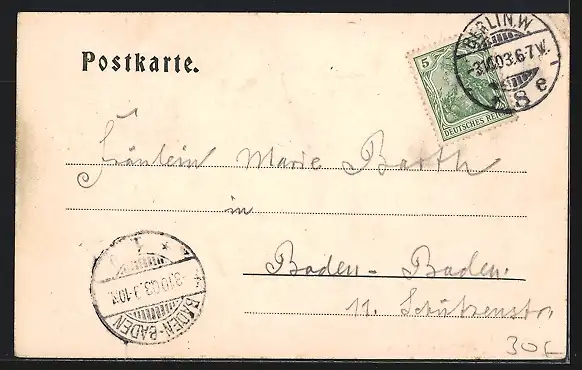 Postkarte.
5
DEUTSCHES REICH
BERLIN.W.
8 e
Fräulein Marie Barth
in
Baden-Baden.
11. Schützenstr.
BADEN-BADEN
30€